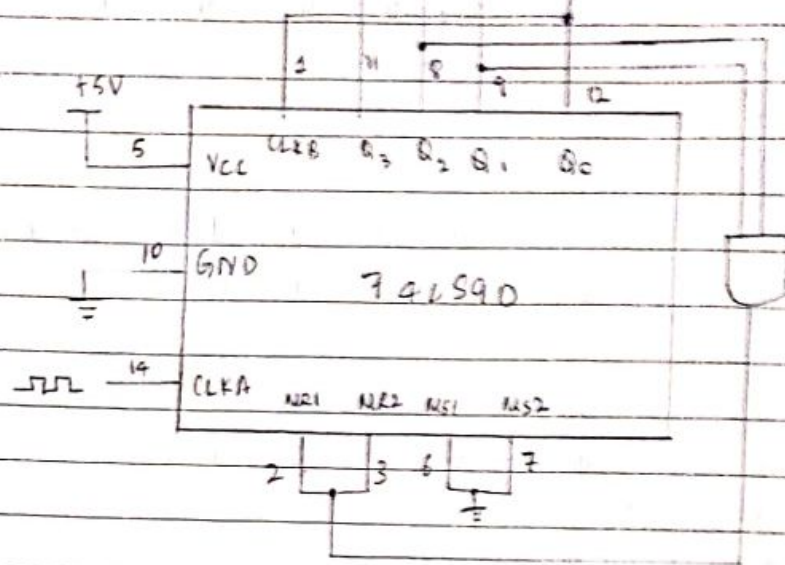 1 11 8 9 12
+5V
5 VCC CLKB Q3 Q2 Q1 Q0
10 GND
74LS90
14 CLKA MR1 MR2 MS1 MS2
2 3 6 7